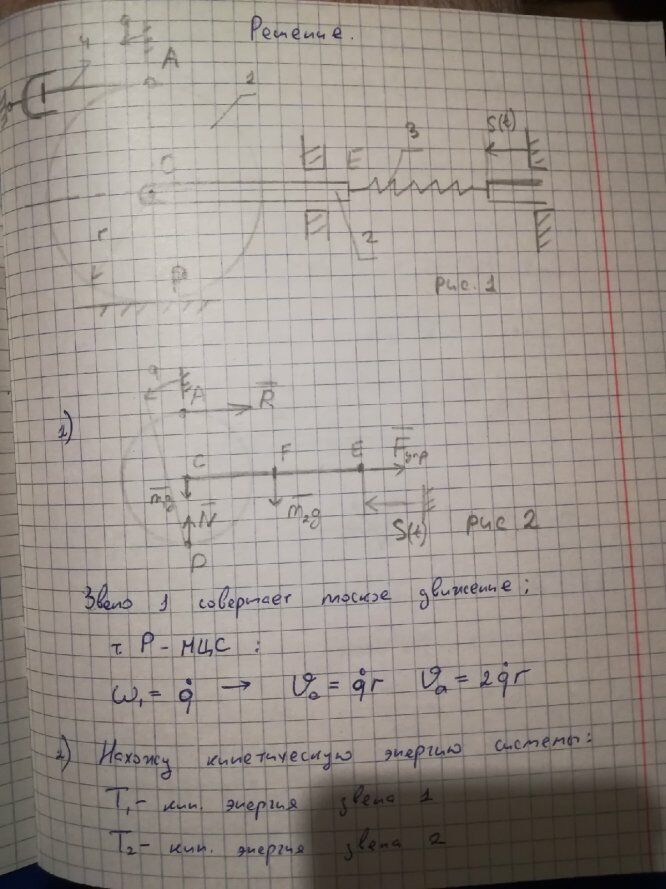 Решение.
4
q
A
1
3
S(t)
C
E
2
r
P
рис. 1
q
1)
A
R̅
C
F
E
F̅упр
m̅g
N̅
m̅₂g
S(t)
рис 2
P
Звено 1 совершает плоское движение:
т. P - МЦС :
ω₁ = q̇ → ϑc = q̇r ϑa = 2q̇r
2) Нахожу кинетическую энергию системы:
T₁ - кин. энергия звена 1
T₂ - кин. энергия звена 2